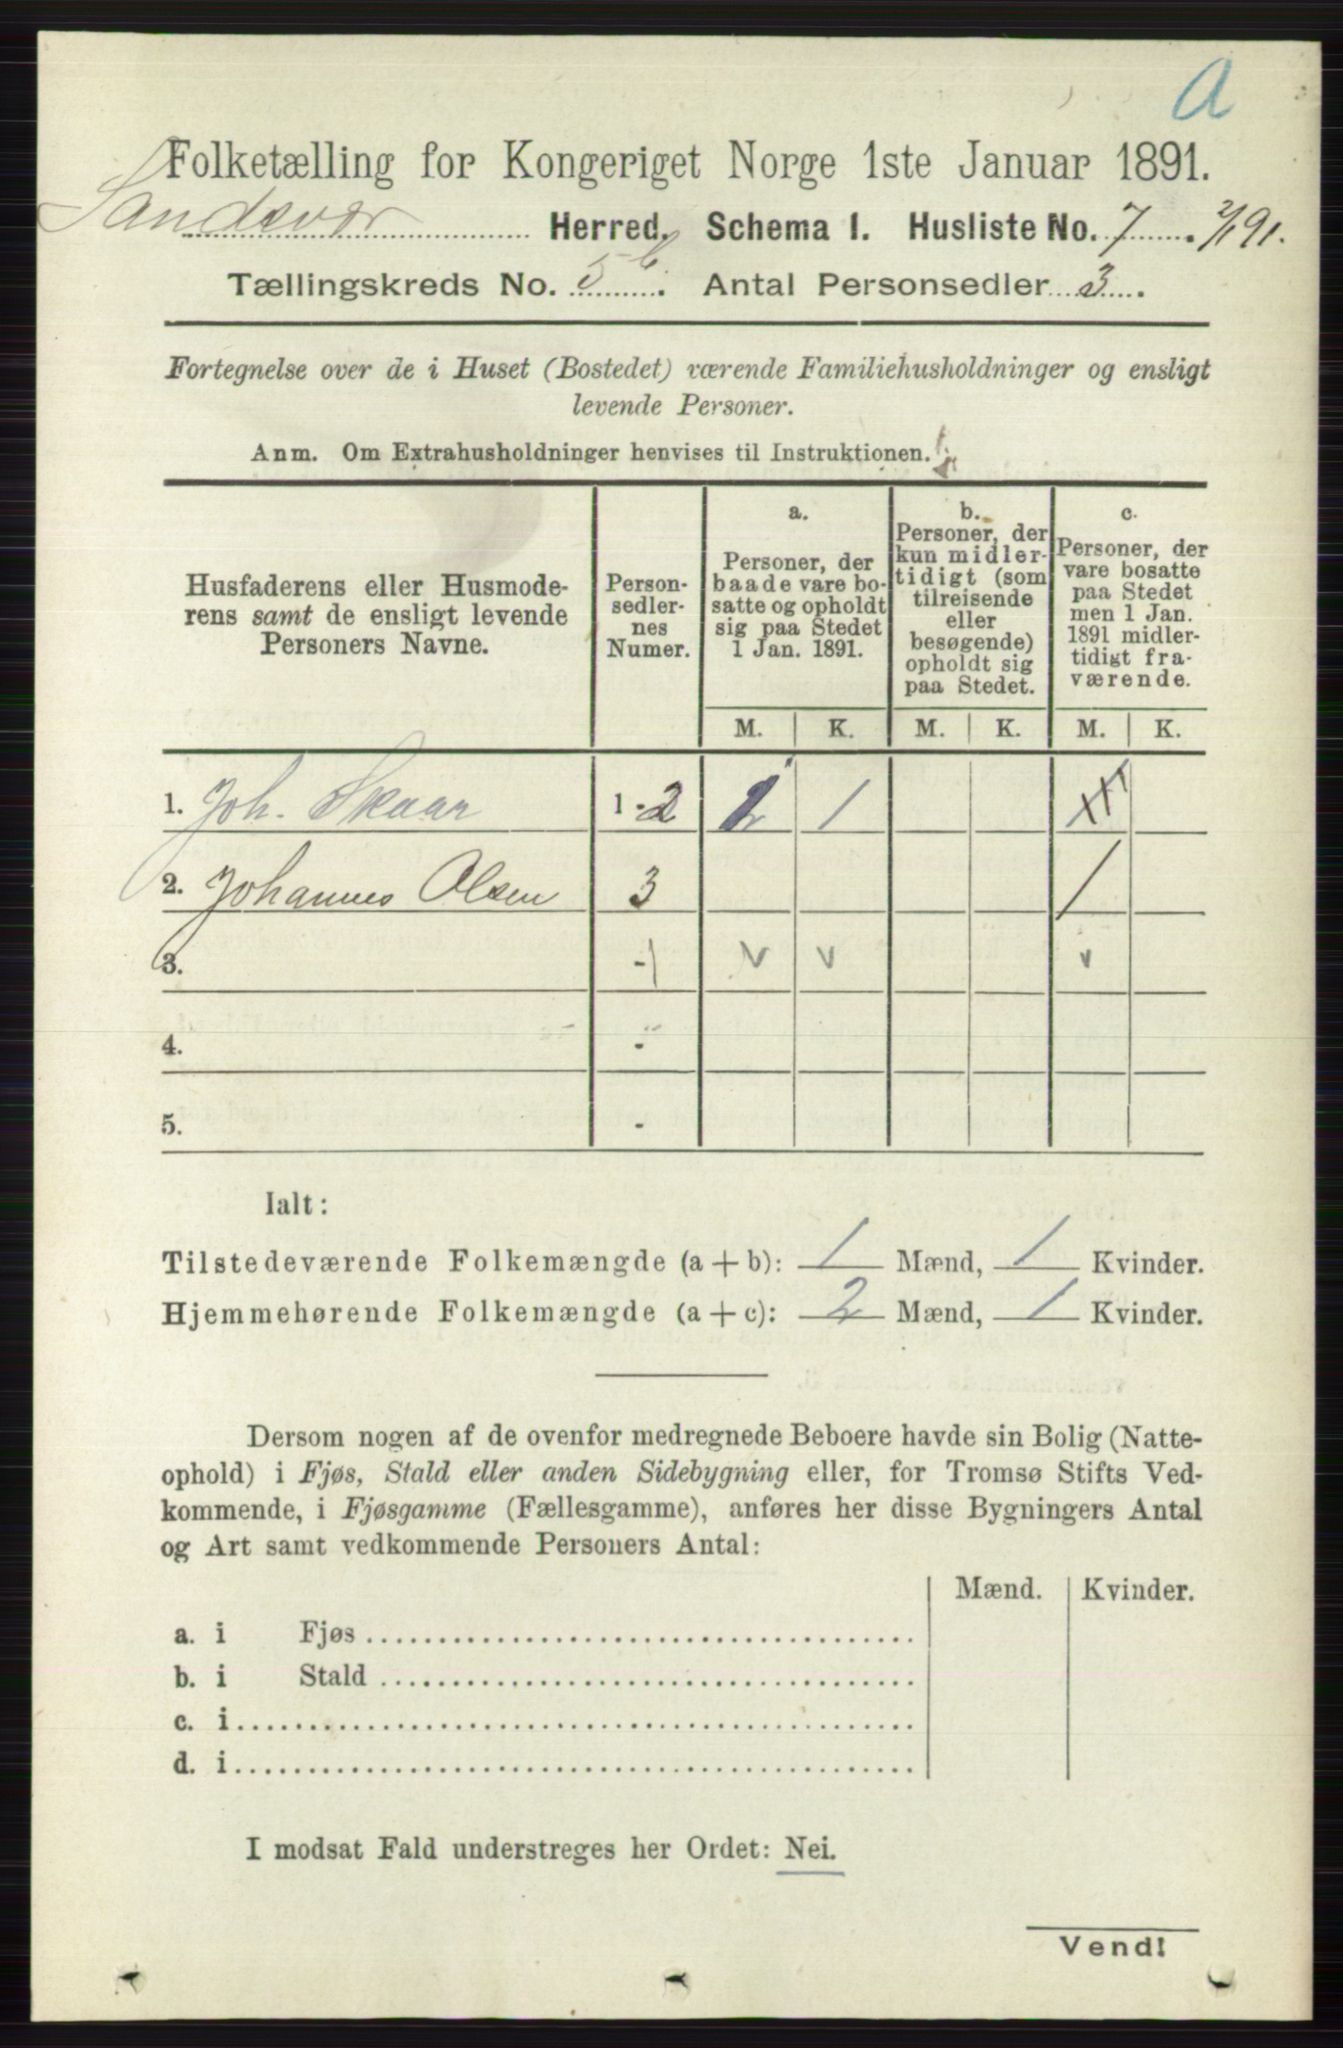 A
Folketælling for Kongeriget Norge 1ste Januar 1891.
Sandsvær Herred. Schema 1. Husliste No. 7. 2/1 91.
Tællingskreds No. 5 b. Antal Personsedler 3.
Fortegnelse over de i Huset (Bostedet) værende Familiehusholdninger og ensligt
levende Personer.
Anm. Om Extrahusholdninger henvises til Instruktionen.
Husfaderens eller Husmode-
rens samt de ensligt levende
Personers Navne.
Person-
sedler-
nes
Numer.
a.
Personer, der
baade vare bo-
satte og opholdt
sig paa Stedet
1 Jan. 1891.
b.
Personer, der
kun midler-
tidigt (som
tilreisende
eller
besøgende)
opholdt sig
paa Stedet.
c.
Personer, der
vare bosatte
paa Stedet
men 1 Jan.
1891 midler-
tidigt fra-
værende.
M. K. M. K. M. K.
1. Joh. Skaar 1-2 1
2. Johannes Olsen 3 1
3. - 1 v v v
4. -
5. -
Ialt:
Tilstedeværende Folkemængde (a + b): 1 Mænd, 1 Kvinder.
Hjemmehørende Folkemængde (a + c): 2 Mænd, 1 Kvinder.
Dersom nogen af de ovenfor medregnede Beboere havde sin Bolig (Natte-
ophold) i Fjøs, Stald eller anden Sidebygning eller, for Tromsø Stifts Ved-
kommende, i Fjøsgamme (Fællesgamme), anføres her disse Bygningers Antal
og Art samt vedkommende Personers Antal:
Mænd. Kvinder.
a. i Fjøs
b. i Stald
c. i
d. i
I modsat Fald understreges her Ordet: Nei.
Vend!